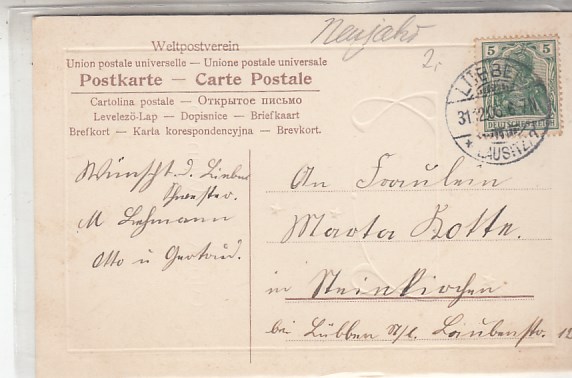 Neujahr
2.
Weltpostverein
Union postale universelle — Unione postale universale
Postkarte — Carte Postale
Cartolina postale — Открытое письмо
Levelező-Lap — Dopisnice — Briefkaart
Brefkort — Karta korespondencyjna — Brevkort.
5 5
DEUTSCHES REICH
31.12.05
LAUSITZ
Wünscht d. Lieben
Schwester.
M Lehmann
Otto u Gertrud.
An Fräulein
Marta Kotte.
in Steinkirchen
bei Lübben N/L. Laubenstr. 12